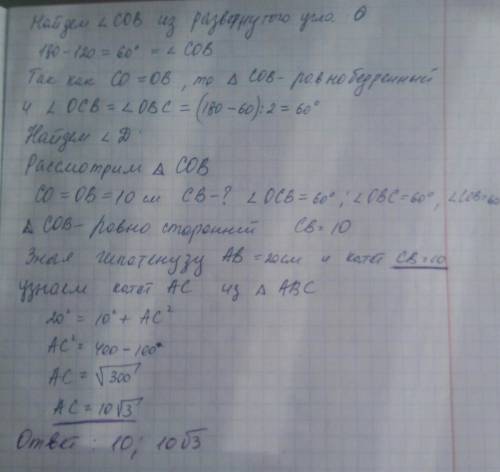 Найдем ∠COB из развернутого угла O
180-120 = 60° = ∠COB
Так как CO = OB, то △ COB - равнобедренный
и ∠OCB = ∠OBC = (180-60):2 = 60°
Найдем ∠D:
Рассмотрим △ COB
CO = OB = 10 см CB-? ∠OCB = 60°; ∠OBC = 60°, ∠COB = 60
△ COB - равно сторонний CB = 10
Зная гипотенузу AB = 20см и катет CB = 10
узнаем катет AC из △ ABC
20² = 10² + AC²
AC² = 400 - 100
AC = √300
AC = 10√3
Ответ: 10; 10√3